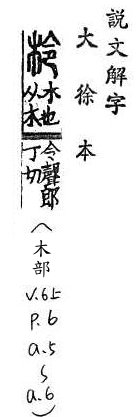 說文解字
大徐本
柃
木也
从木
令聲郎
丁切
(木部
V.6上
P.6
a.5
~
a.6)